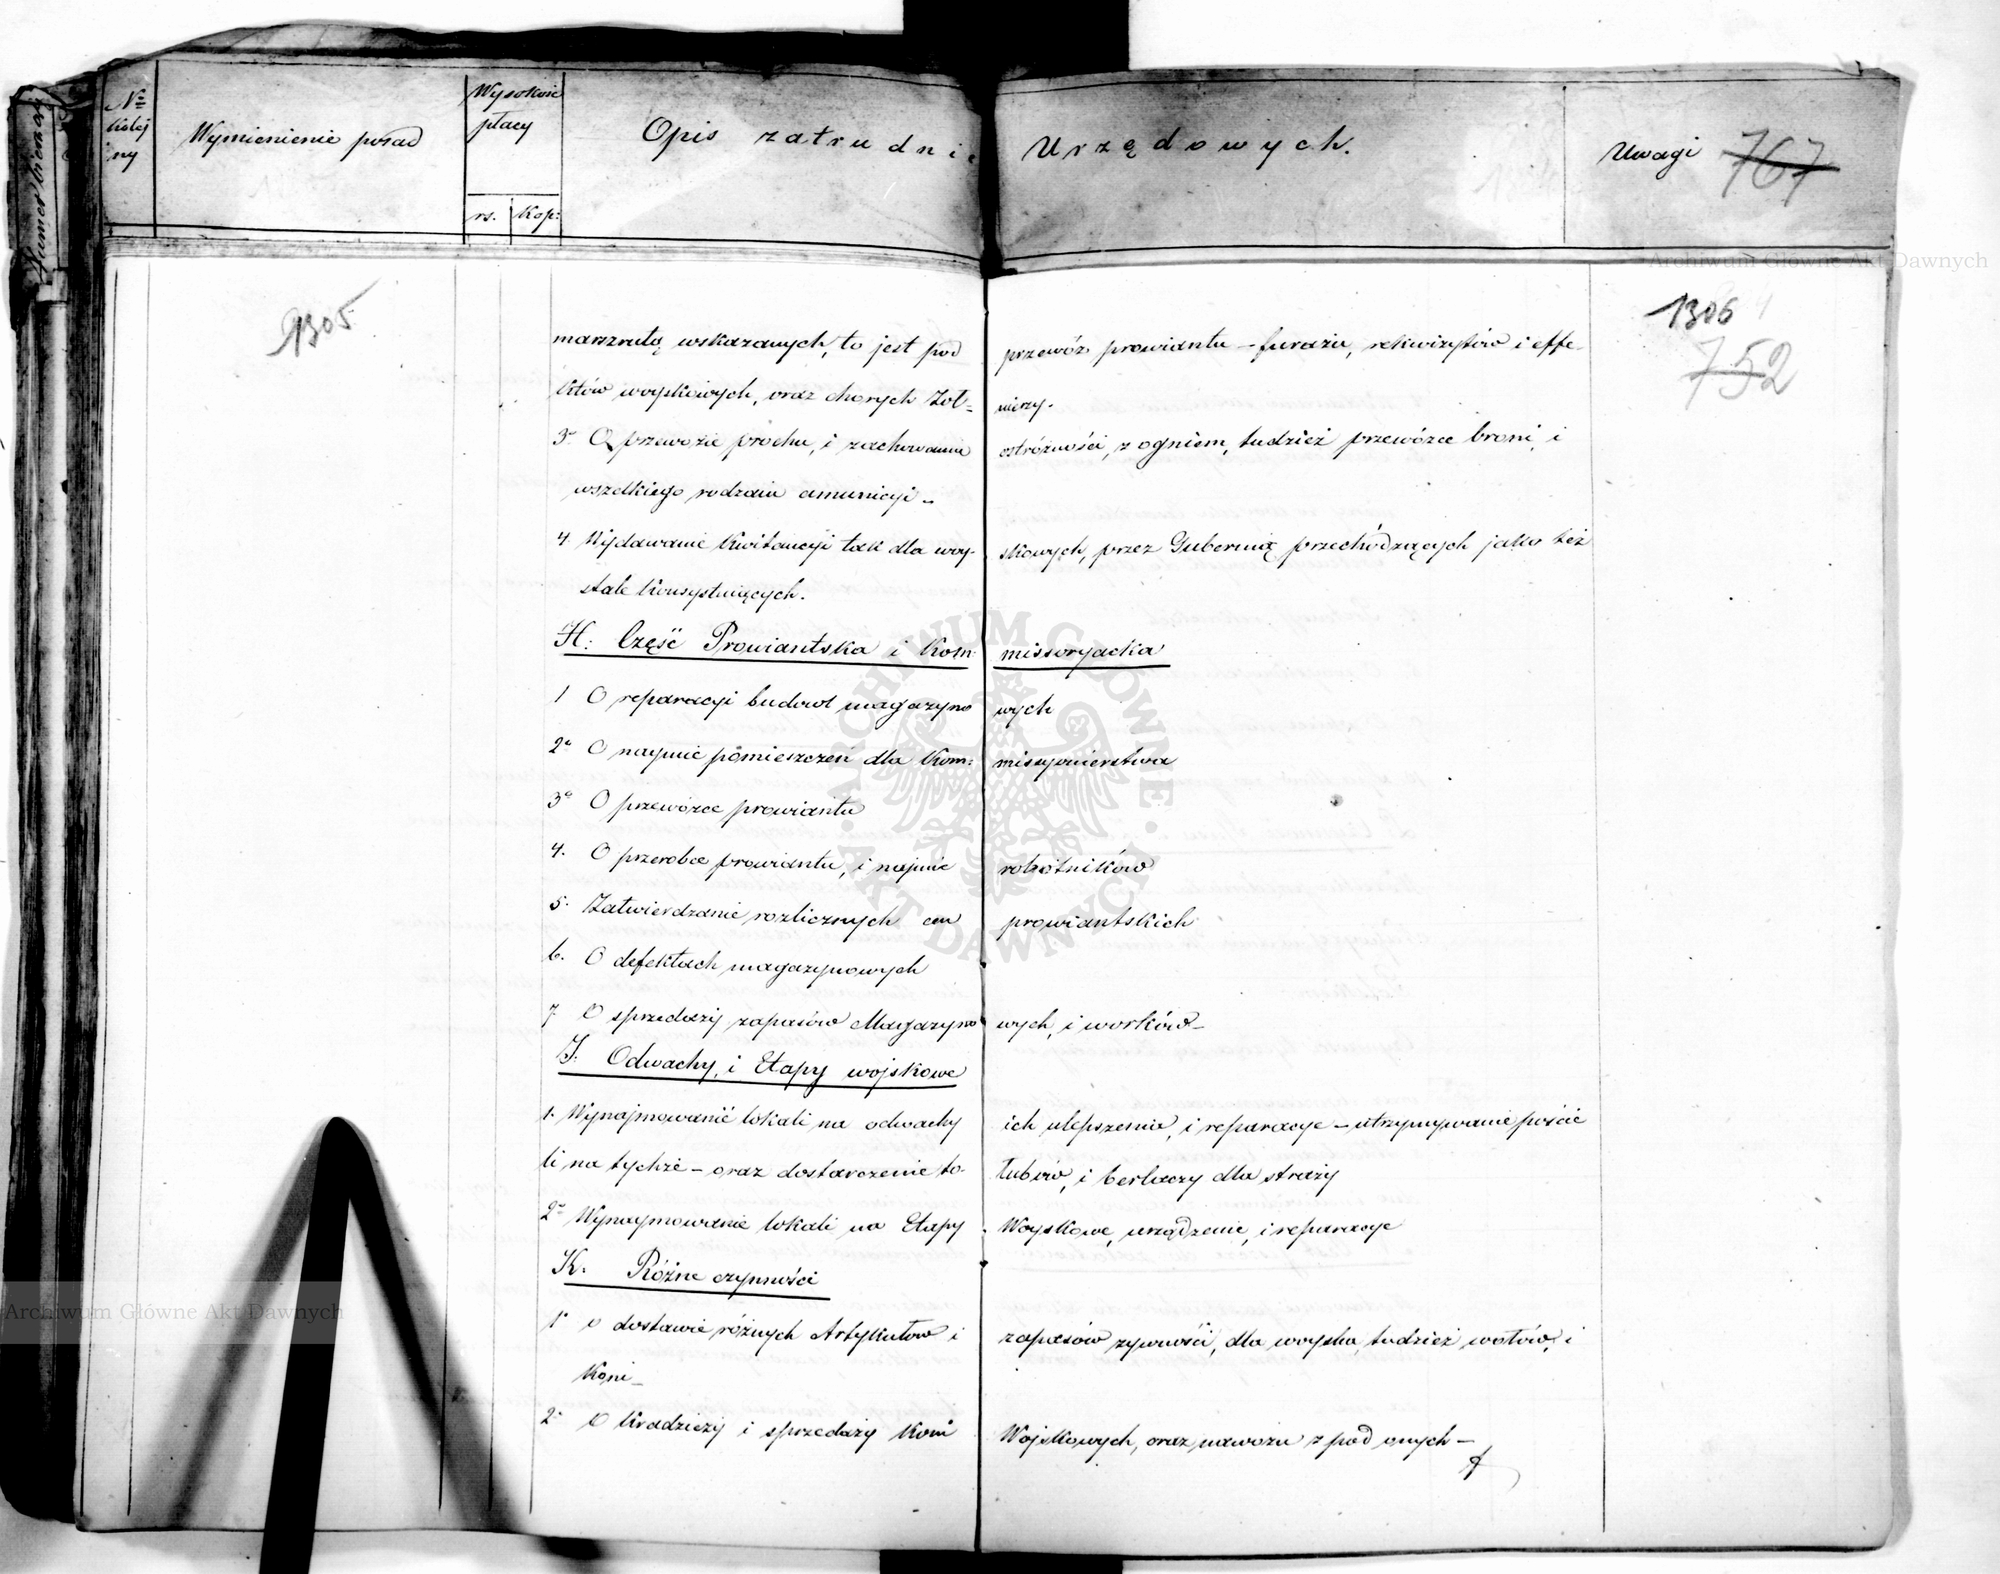 Numer bieżący
№ kolejny
Wymienienie posad
Wysokość płacy
rs. Kop:
Opis zatrudnie
Urzędowych.
Uwagi 767
1305
1306
752
marszrutą wskazanych, to jest pod przewóz prowiantu – furażu, rekwizytów i effe-
któw woyskowych, oraz chorych Żoł- nierzy.
3° O przewozie prochu, i zachowaniu ostróżności, z ogniem, tudzież przewózce broni, i
wszelkiego rodzaiu amunicyi –
4. Wydawanie kwitancyi tak dla woy- skowych, przez Gubernią przechódzących jako też
stale konsystuiących.
H: Część Prowiantska i Kom: missoryacka
1 O reparacyi budowl magazyno wych
2° O naymie pomieszczeń dla Kom: missyonierstwa
3° O przewózce prowiantu
4. O przerobce prowiantu, i najmie robotników
5. Zatwierdzanie rozlicznych cen prowiantskich
6. O defektach magazynowych
7 O sprzedaży zapasów Magazyno wych, i worków –
J. Odwachy, i Etapy wojskowe
1. Wynajmowanie lokali na odwachy ich ulepszenie, i reparacye – utrzymywanie poście
li na tychże – oraz dostarczenie to- łubów, i berlaczy dla straży
2° Wynaymowanie lokali na Etapy Woyskowe, urządzenie, i reparacye
K. Różne czynności
1° o dostawie różnych Artykułów i zapasów żywności, dla woyska, tudzież wołów, i
Koni –
2° O kradzieży i sprzedaży Koni Wojskowych, oraz nawozu z pod onych –
Archiwum Główne Akt Dawnych
ARCHIWUM GŁÓWNE · AKT DAWNYCH ·
Archiwum Główne Akt Dawnych